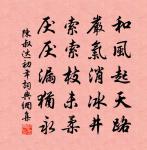 和風起天路
嚴氣消冰井
索索枝未柔
厭厭漏猶永
陳叔達初年詞典網集